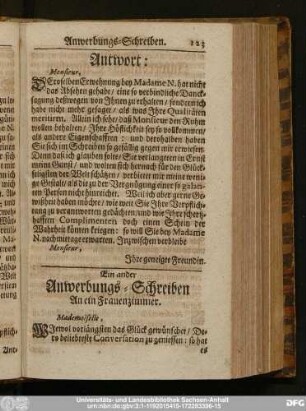 Anwerbungs-Schreiben. 223
Antwort:
Monsieur,
DErselben Erwehnung bey Madame N. hat nicht
das Absehen gehabt / eine so verbindliche Danck-
sagung deswegen von Ihnen zu erhalten / sondern ich
habe nicht mehr gesaget / als was Ihre Qualitäten
meritiren. Allein ich sehe / daß Monsieur den Ruhm
wollen behalten / Ihre Höflichkeit sey so vollkommen /
als andere Eigenschafften : und derohalben haben
Sie sich im Schreiben so gefällig gegen mir erwiesen.
Denn daß ich glauben solte / Sie verlangeten in Ernst
meine Gunst / und wolten sich hernach für den Glück-
seligsten der Welt schätzen /
zu verantworten gedächten / und wie Ihre schertz-
hafften Complimenten doch einen Schein der
Wahrheit könten kriegen : so will Sie bey Madame
N. nachmittage erwarten. Inzwischen verbleibe
Monsieur,
Ihre geneigte Freundin.
Ein ander
Anwerbungs-Schreiben
An ein Frauenzimmer.
Mademoiselle,
WIewol vorlängsten das Glück gewünschet / De-
ro beliebteste Conversation zu geniessen : so hat
es
Universitäts- und Landesbibliothek Sachsen-Anhalt
urn:nbn:de:gbv:3:1-1192015415-172283396-15